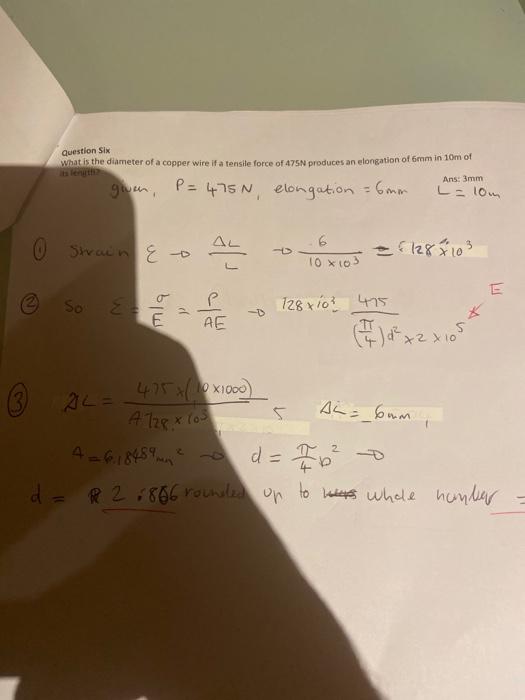 Question Six
What is the diameter of a copper wire if a tensile force of 475N produces an elongation of 6mm in 10m of
its length?
Ans: 3mm
given, P = 475 N, elongation = 6mm L = 10m
① Strain ε → ΔL/L → 6/(10 × 10³) =
E
② So ε = σ/E = P/AE → 475/((π/4)d² × 2 × 10⁵)
③ ΔL = 475 × (10 × 1000)/(A 128 × 10³) ΔL = 6mm
A = 6.18489 mm² → d = π/4 D² →
d = 2.806 rounded up to whole number =